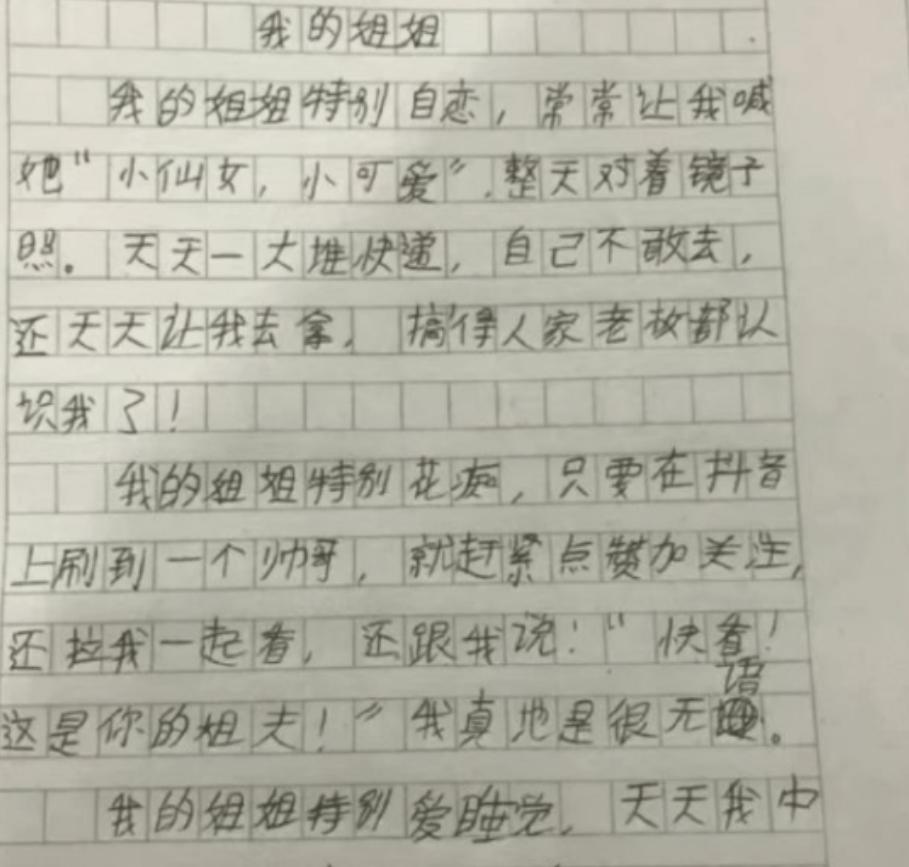 我的姐姐
我的姐姐特别自恋，常常让我喊
她“小仙女，小可爱”.整天对着镜子
照。天天一大堆快递，自己不敢去，
还天天让我去拿，搞得人家老板都认
识我了！
我的姐姐特别花痴，只要在抖音
上刷到一个帅哥，就赶紧点赞加关注，
还拉我一起看，还跟我说：“快看！
这是你的姐夫！”我真地是很无语。
我的姐姐特别爱睡觉，天天我中